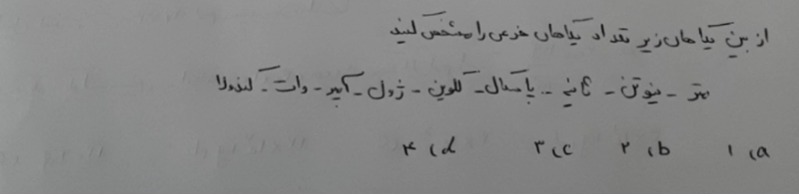 از بین یکاهای زیر تعداد یکاهای فرعی را مشخص کنید
متر - نیوتن - ثانیه - پاسکال - کلوین - ژول - آمپر - وات - کندولا
a) ۱ b) ۲ c) ۳ d) ۴